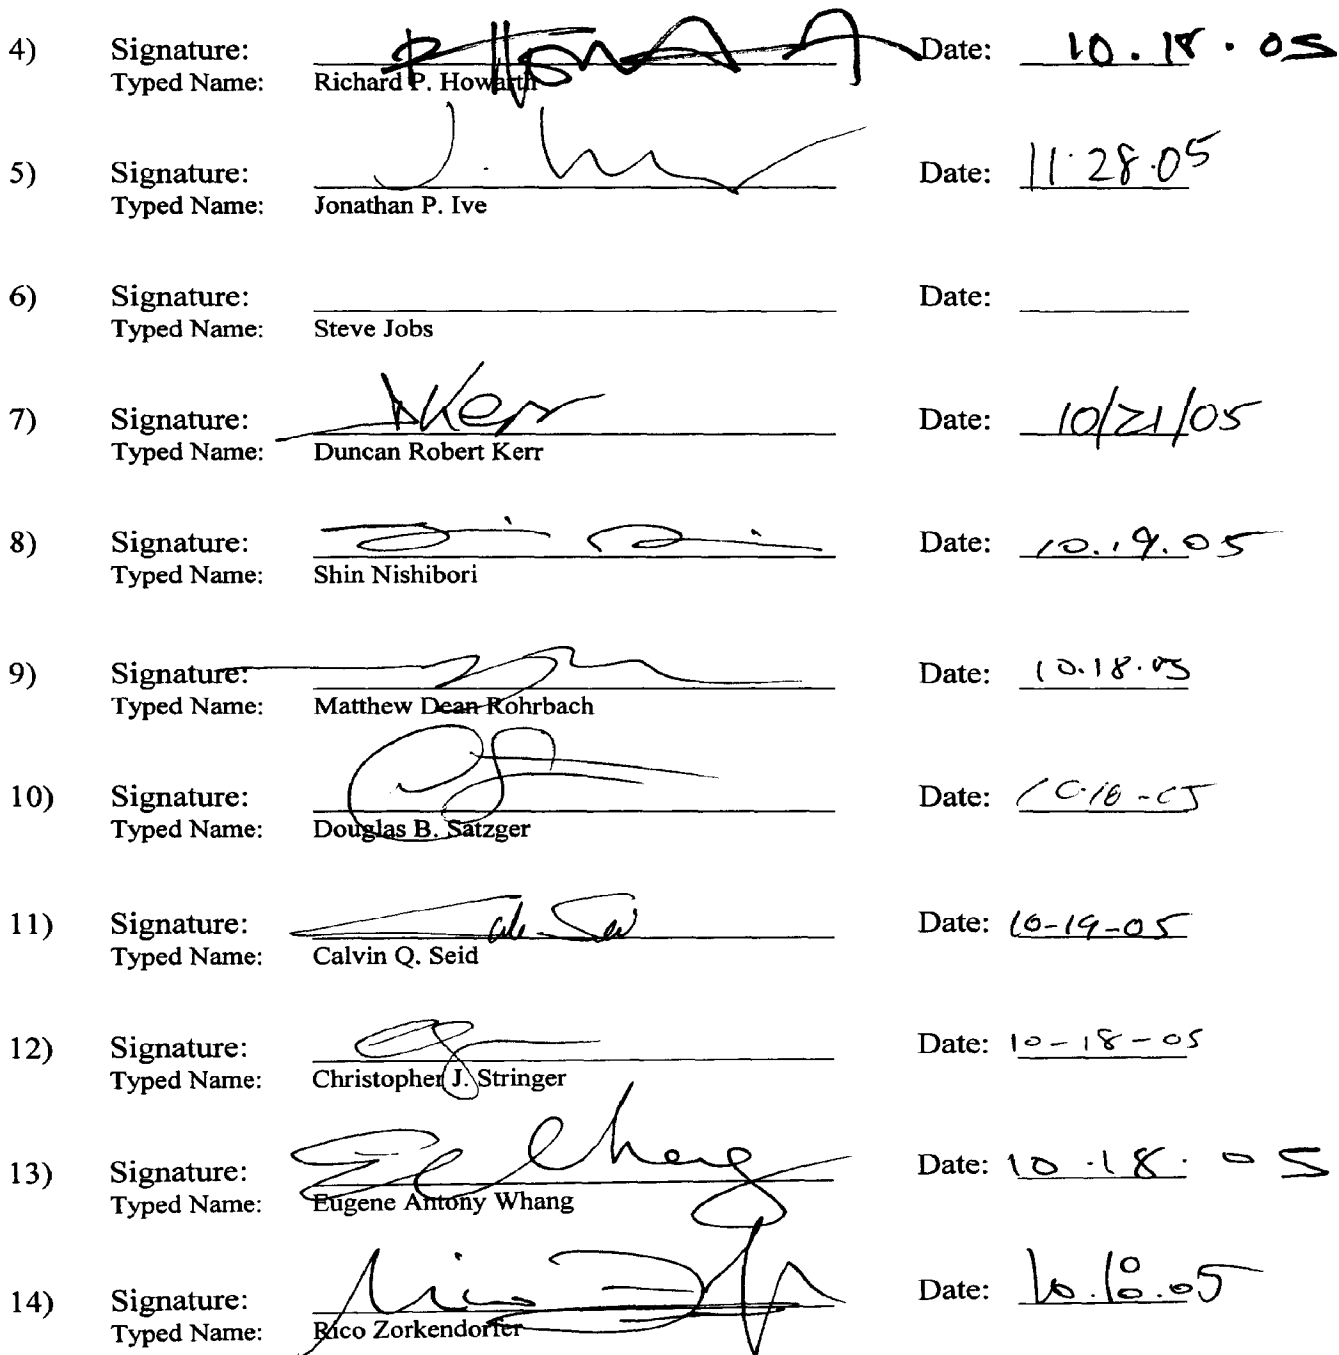 4) Signature: R Howarth Date: 10.18.05
Typed Name: Richard P. Howarth
5) Signature: Date: 11.28.05
Typed Name: Jonathan P. Ive
6) Signature: Date:
Typed Name: Steve Jobs
7) Signature: DKerr Date: 10/21/05
Typed Name: Duncan Robert Kerr
8) Signature: Date: 10.19.05
Typed Name: Shin Nishibori
9) Signature: Date: 10.18.05
Typed Name: Matthew Dean Rohrbach
10) Signature: Date: 10-18-05
Typed Name: Douglas B. Satzger
11) Signature: Date: 10-19-05
Typed Name: Calvin Q. Seid
12) Signature: Date: 10-18-05
Typed Name: Christopher J. Stringer
13) Signature: Date: 10.18.05
Typed Name: Eugene Antony Whang
14) Signature: Date: 10.18.05
Typed Name: Rico Zorkendorfer